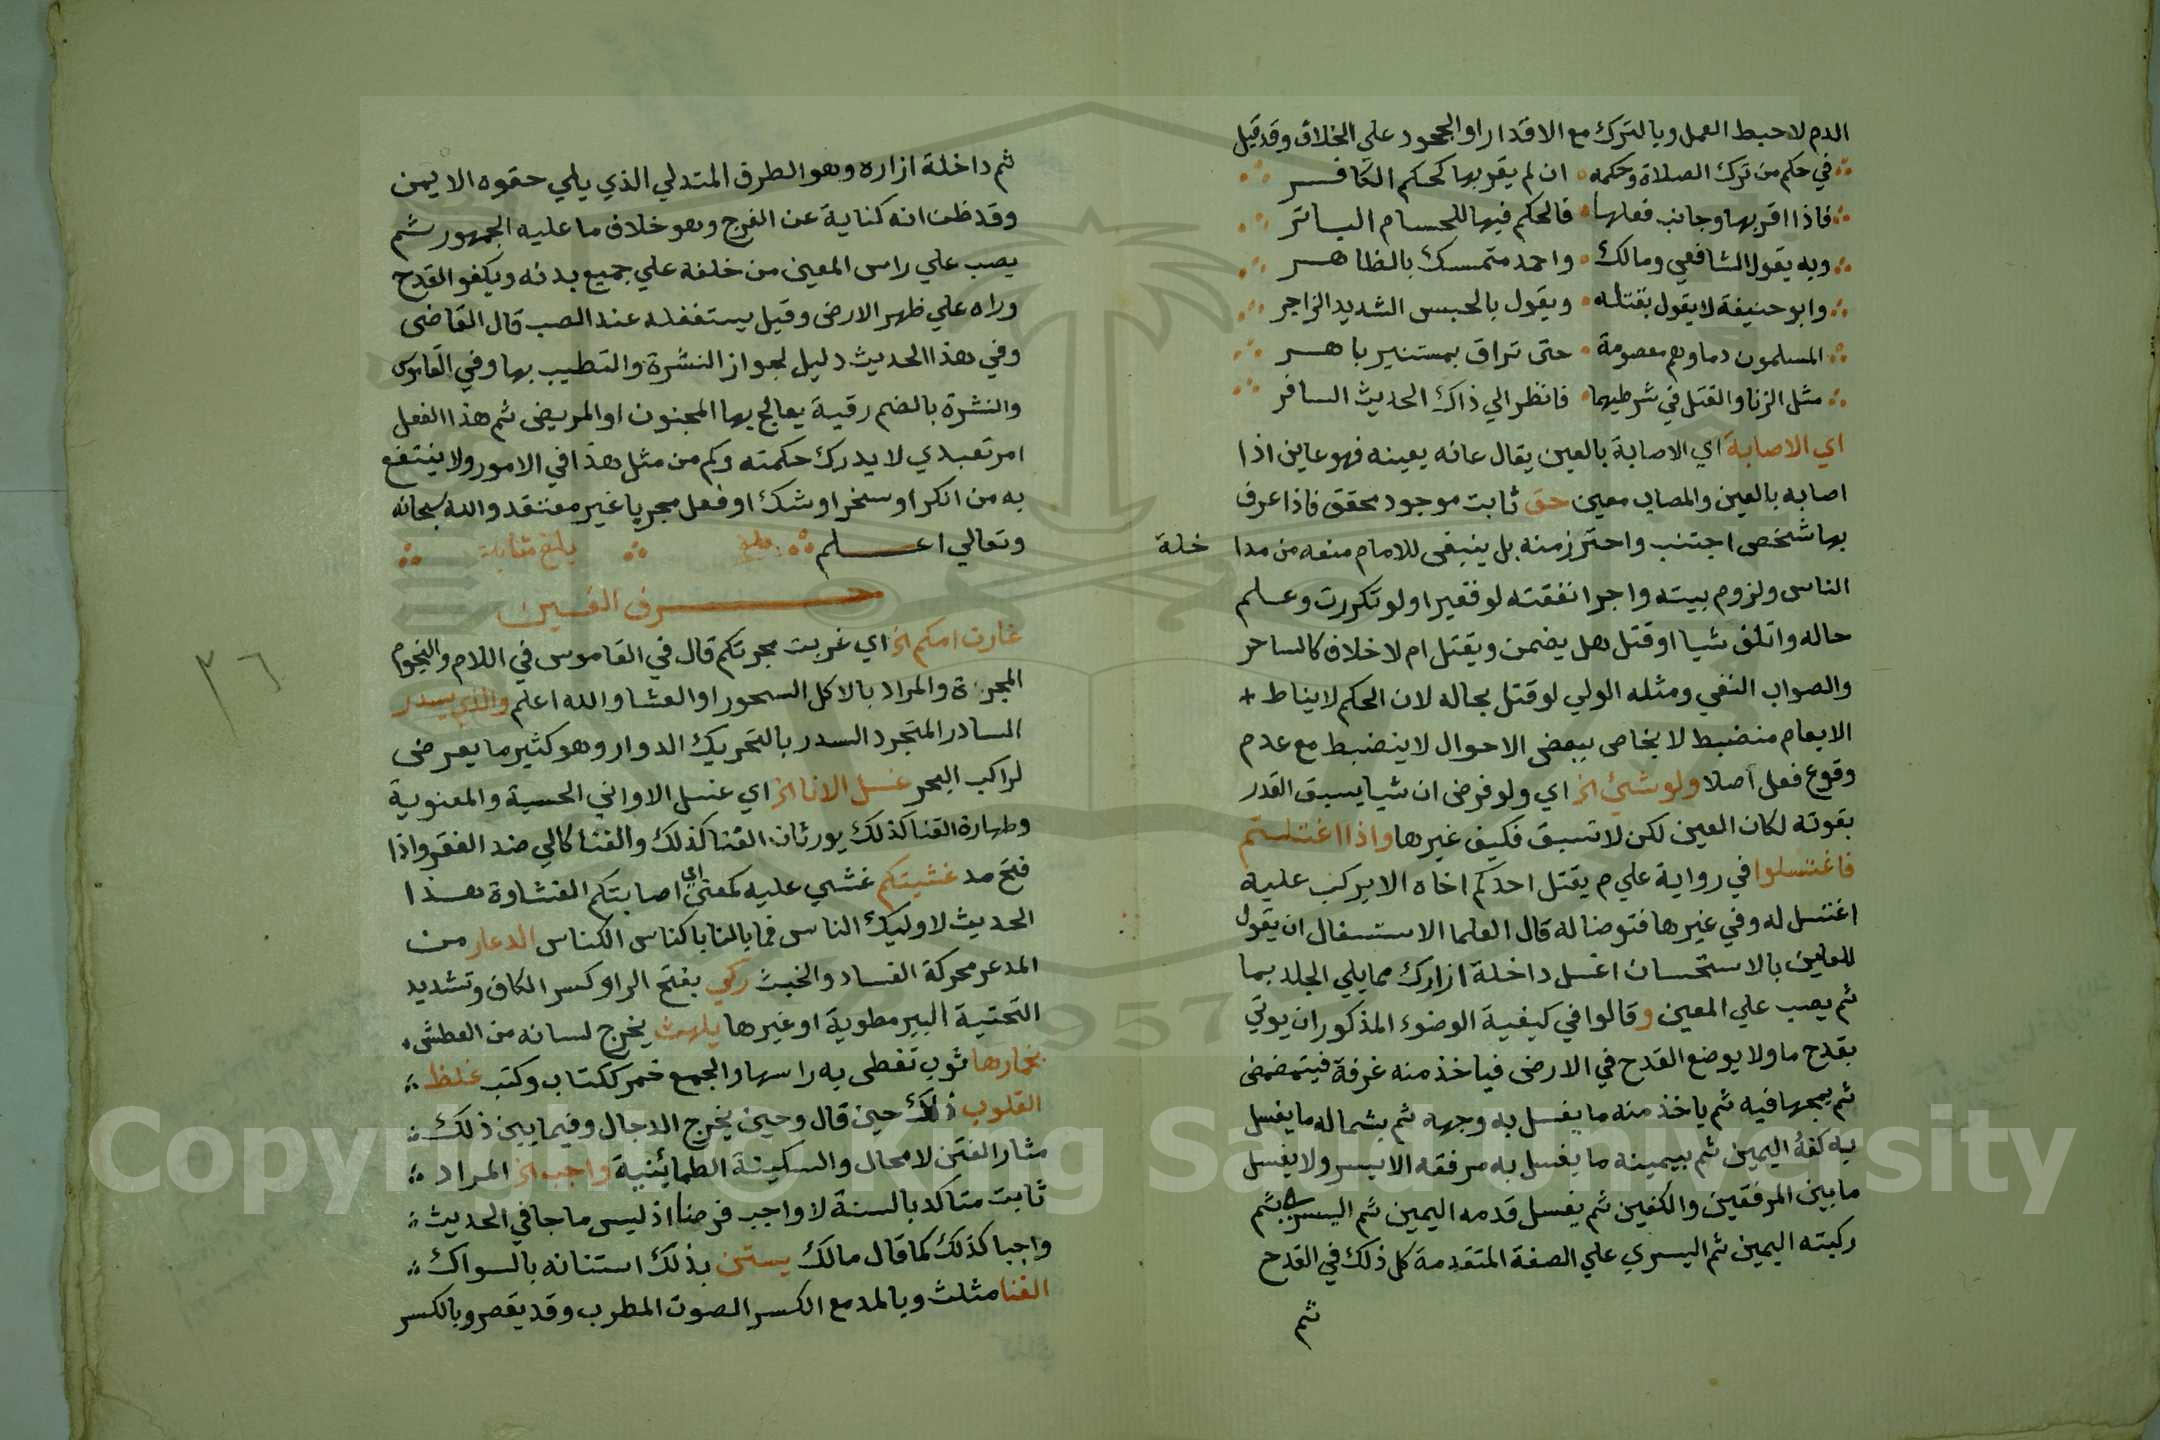 الدم لاحبط العمل وبالترك مع الاقدار او الجحود علي الخلاف وقد قيل
في حكم من ترك الصلاة وحكمه ان لم يقر بها كحكم الكافر
فاذا اقر بها وجانب فعلها فالحكم فيها للحسام الباتر
وبه يقول الشافعي ومالك واحمد متمسك بالظاهر
وابو حنيفة لا يقول بقتله ويقول بالحبس الشديد الزاجر
المسلمون دماوهم معصومة حتى تراق بمستنير باهر
مثل الزنا والقتل في شرطيهما فانظر الي ذاك الحديث السافر
اي الاصابة اي الاصابة بالعين يقال عانه يعينه فهو عاين اذا
اصابه بالعين والمصاب معين حق ثابت موجود محقق فاذا عرف
بها شخص اجتنب واحترز منه بل ينبغي للامام منعه من مدا خلة
الناس ولزوم بيته واجرا نفقته لو فقيرا ولو تكررت وعلم
حاله واتلف شيا او قتل هل يضمن ويقتل ام لا خلاف كالساحر
والصواب النفي ومثله الولي لو قتل بحاله لان الحكم لا يناط
الابعام منضبط لا بخاص ببعض الاحوال لا ينضبط مع عدم
وقوع فعل اصلا ولو شئ الخ اي ولو فرض ان شيا يسبق القدر
بقوته لكان العين لكن لا تسبق فكيف غيرها واذا اغتسلتم
فاغتسلوا في رواية علي م يقتل احدكم اخاه الا بركت عليه
اغتسل له وفي غيرها فتوضا له قال العلما الاستغسال ان يقول
للعاين بالاستحسان اغسل داخلة ازارك مما يلي الجلد بما
ثم يصب علي المعين وقالوا في كيفية الوضوء المذكور ان يوتي
بقدح ما ولا يوضع القدح في الارض فياخذ منه غرفة فيتمضمض
ثم يمجها فيه ثم ياخذ منه ما يغسل به وجهه ثم بشماله ما يغسل
به كفه اليمين ثم بيمينه ما يغسل به مرفقه الايسر ولا يغسل
ما بين المرفقين والكفين ثم يغسل قدمه اليمين ثم اليسرى ثم
ركبته اليمين ثم اليسري علي الصفة المتقدمة كل ذلك في القدح
ثم
ثم داخلة ازاره وهو الطرف المتدلي الذي يلي حقوه الايمن
وقد ظن انه كناية عن الفرج وهو خلاف ما عليه الجمهور ثم
يصب علي راس المعين من خلفه علي جميع بدنه ويكفو القدح
وراه علي ظهر الارض وقيل يستغفله عند الصب قال القاضى
وفي هذا الحديث دليل لجواز النشرة والتطيب بها وفي القاموس
والنشرة بالضم رقية يعالج بها المجنون او المريض ثم هذا الفعل
امر تعبدي لا يدرك حكمته وكم من مثل هذا في الامور ولا ينتفع
به من انكر او سخر او شك او فعل مجربا غير معتقد والله سبحانه
وتعالي اعلم بلغ بلغ مقابلة
حرف الغين
غارت امكم الخ اي غربت مجرتكم قال في القاموس في اللام والنجوم
المجرة والمراد بالاكل السحور او العشا والله اعلم والذي يسدر
السادر المتجرد السدر بالتحريك الدوار وهو كثير ما يعرض
لراكب البحر غسل الانا الخ اي غسل الاواني الحسية والمعنوية
وطهارة الفنا كذلك يورثان الغنا كذلك والغنا كالي ضد الفقر واذا
فتح مد غشيتكم غشي عليه كمعني اي اصابتكم الغشاوة هذا
الحديث لاوليك الناس فما بالنا يا كناس الكناس الدعار من
المدعر محركة الفساد والخبث ركي بفتح الرا وكسر الكاف وتشديد
التحتية البير مطوية او غيرها يلهث يخرج لسانه من العطش
بخمارها ثوب تغطى به راسها والجمع خمر ككتاب وكتب غلظ
القلوب ذلك حين قال وحين يخرج الدجال وفيما بين ذلك
مثار الفتن لا محال والسكينة الطمائينية واجب الخ المراد
ثابت متاكد بالسنة لا واجب فرضا اذ ليس ما جا في الحديث
واجبا كذلك كما قال مالك يستن بذلك استنانه بالسواك
الغنا مثلث وبالمد مع الكسر الصوت المطرب وقد يقصر وبالكسر
٣٦
Copyright © King Saud University
1957